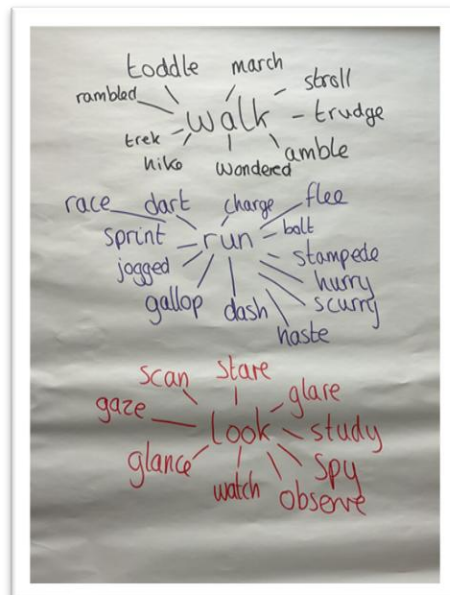 toddle march
stroll
rambled
walk
trudge
trek
hike wondered amble
race dart charge flee
sprint run bolt
jogged stampede
hurry
gallop dash scurry
haste
scan stare
glare
gaze
look study
glance spy
watch observe